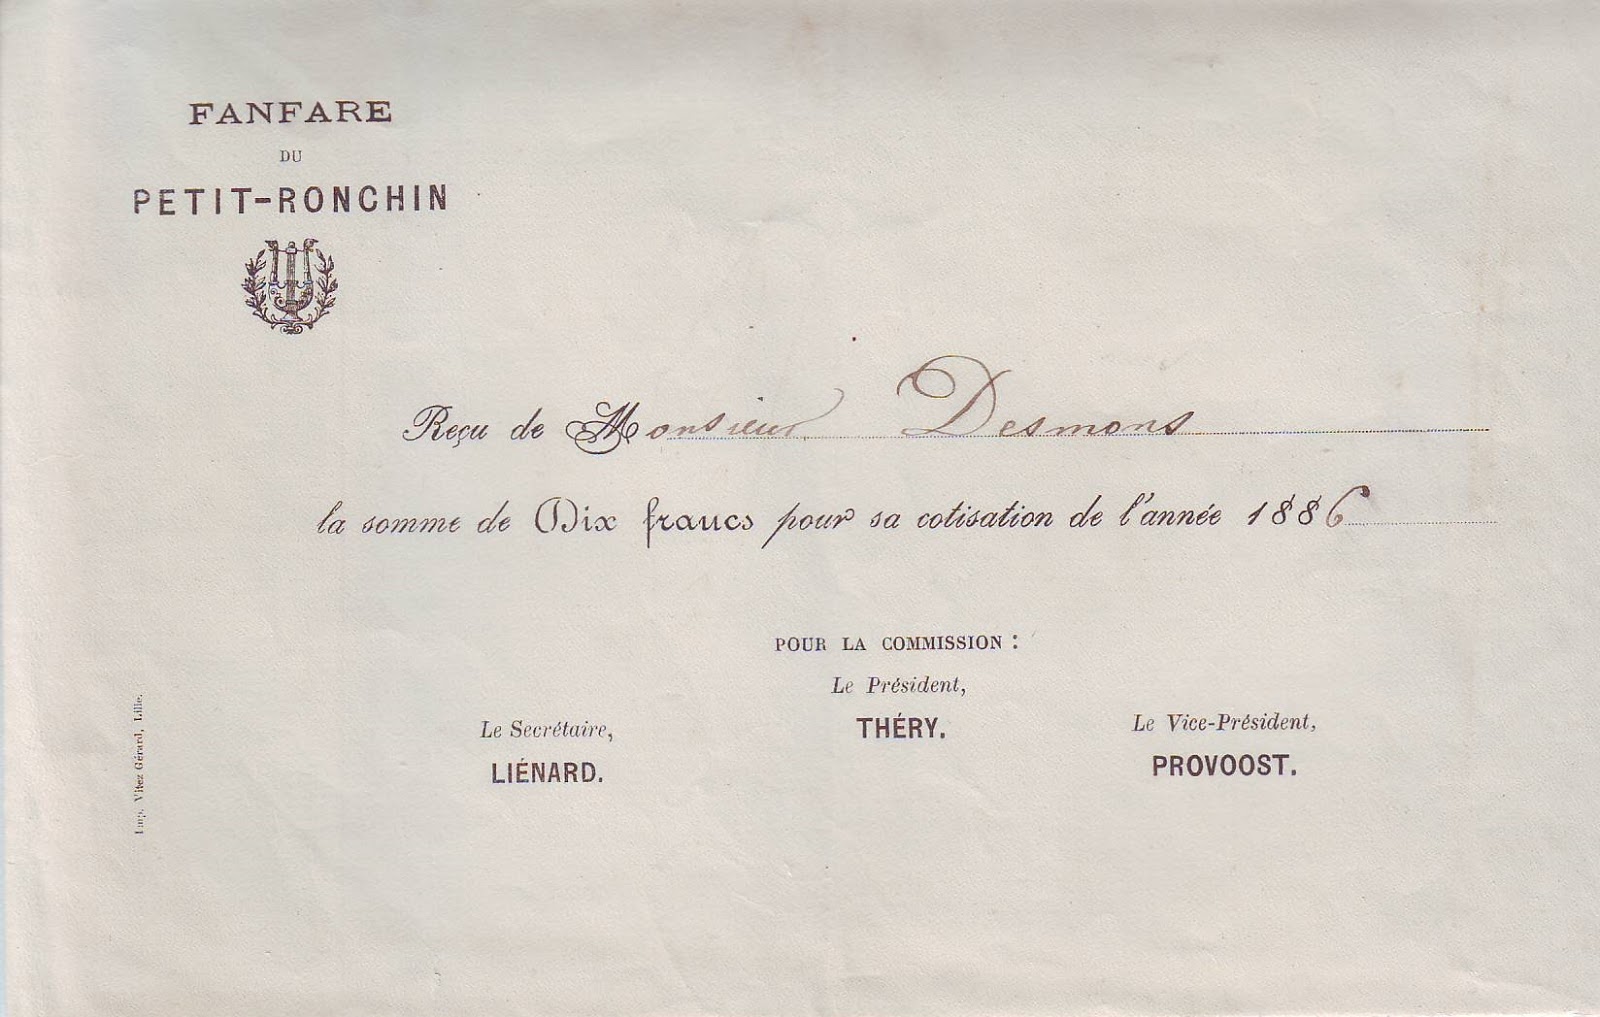 FANFARE
DU
PETIT-RONCHIN
Reçu de Monsieur Desmons
la somme de Dix francs pour sa cotisation de l'année 1886
POUR LA COMMISSION :
Le Président,
THÉRY.
Le Secrétaire,
LIÉNARD.
Le Vice-Président,
PROVOOST.
Imp. Vitez Gérard, Lille.